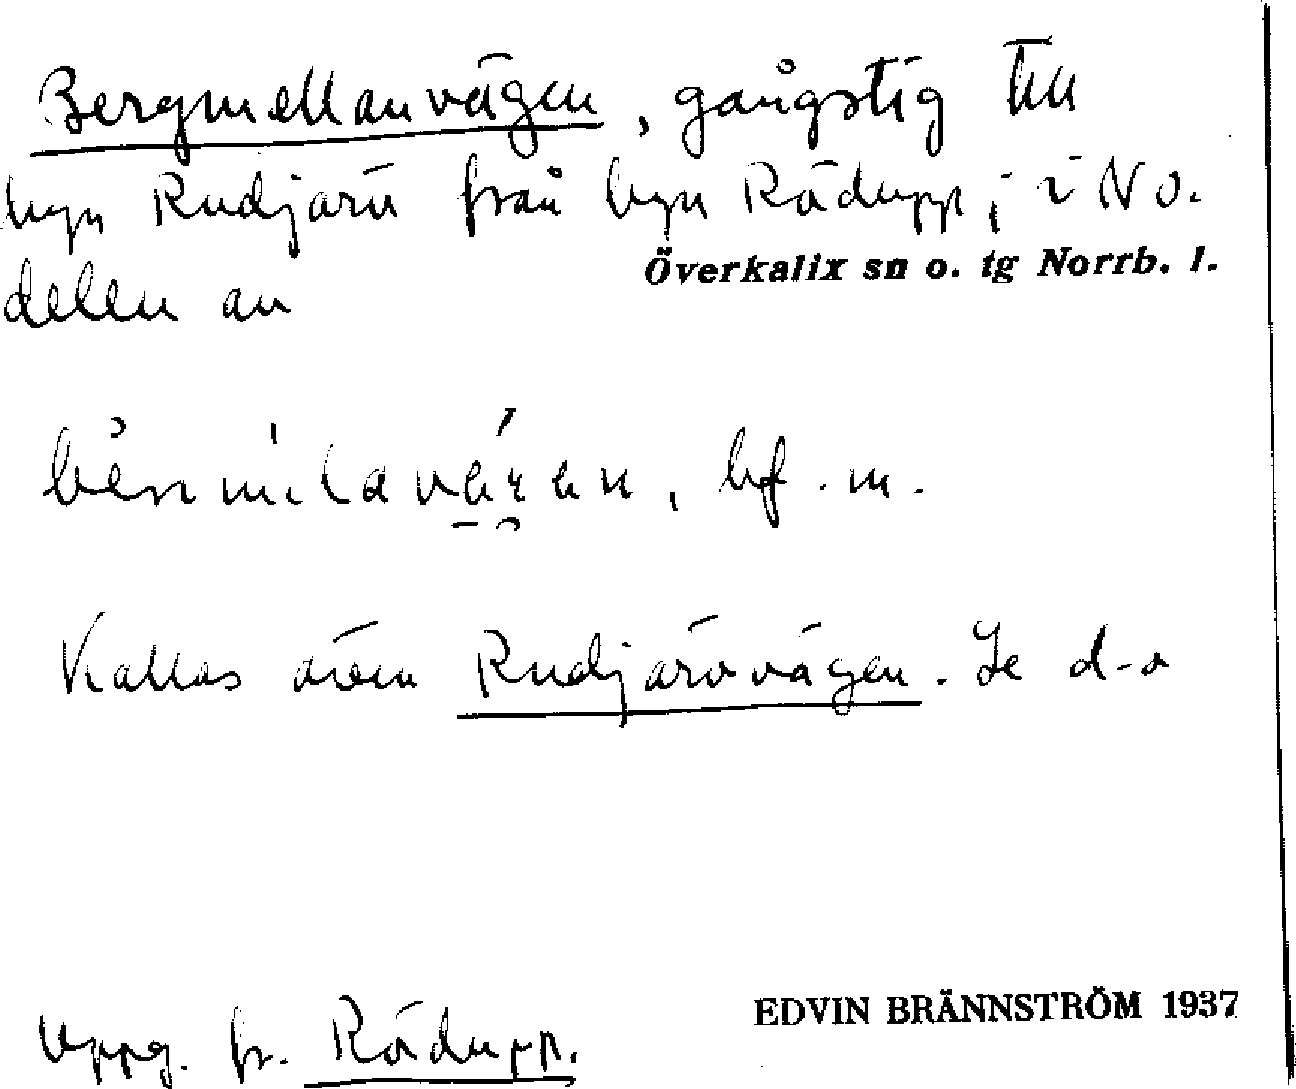 Bergmellanvägen, gångstig till
byn Rudjärv från byn Rödupp; i NO.
Överkalix sn o. tg Norrb. l.
delen av
bf. m.
Kallas även Rudjärvvägen. Se d-o
Uppg. fr. Rödupp.
EDVIN BRÄNNSTRÖM 1937